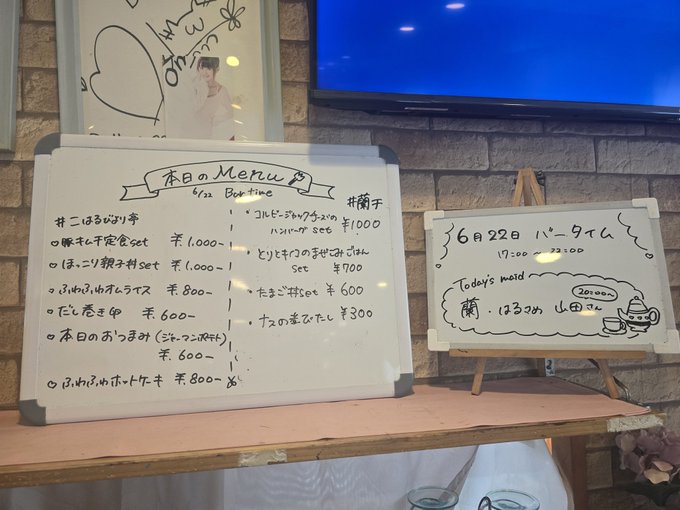 本日のMenu
6/22 Bar time
#こはるびより亭
豚キムチ定食set ¥1,000-
ほっこり親子丼set ¥1,000-
ふわふわオムライス ¥800-
だし巻き卵 ¥600-
本日のおつまみ(ジャーマンポテト)
¥600-
ふわふわホットケーキ ¥800-
#蘭子
・コルビージャックチーズの
ハンバーグ set ¥1000
・とりとキノコのまぜごみごはん
set ¥700
・たまご丼set ¥600
・ナスの煮びたし ¥300
6月22日 バータイム
17:00〜22:00
Today's maid
20:00〜
蘭・はるさめ 山田さん